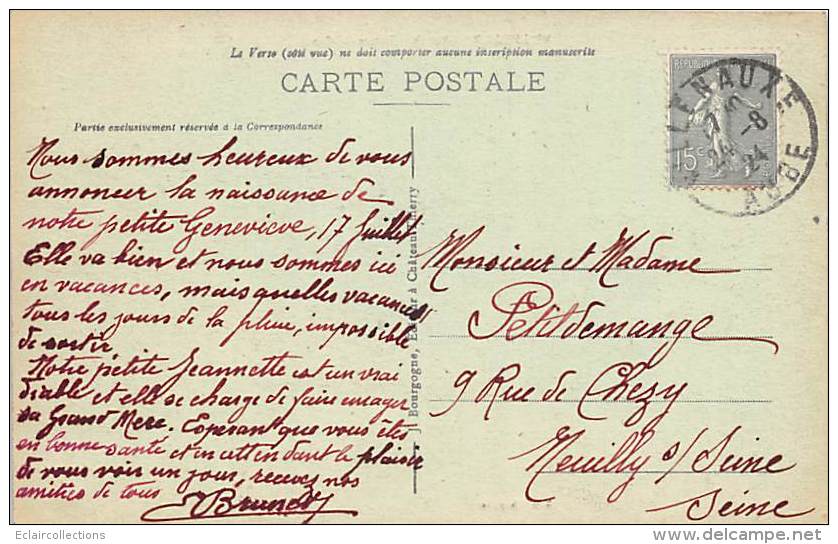 Le Verso (côté vue) ne doit comporter aucune inscription manuscrite
CARTE POSTALE
Partie exclusivement réservée à la Correspondance
Nous sommes heureux de vous
annoncer la naissance de
notre petite Geneviève, 17 Juillet
Elle va bien et nous sommes ici
en vacances, mais quelles vacances
tous les jours de la pluie, impossible
de sortir
Notre petite Jeannette est un vrai
diable et elle se charge de faire enrager
sa Grand Mère. Espérant que vous êtes
en bonne santé et en attendant le plaisir
de vous voir un jour, recevez nos
amitiés de tous
J. Bourgogne, Editeur à Château-Thierry
RÉPUBLIQUE
15c
VILLENAUXE
24
-8
24
AUBE
Monsieur et Madame
Petitdemange
9 Rue de Chezy
Neuilly s/ Seine
Seine
Eclaircollections
delcampe.net